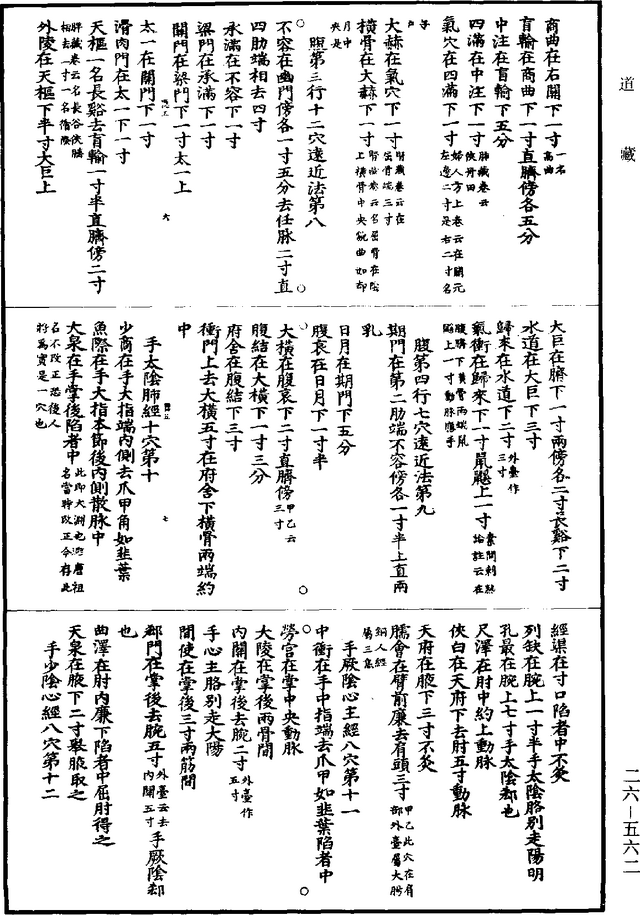 道藏
商曲在石關下一寸一名高曲
肓輸在商曲下一寸直臍傍各五分
中注在肓輸下五分
四滿在中注下一寸肺藏卷云俠丹田
氣穴在四滿下一寸婦人方上卷云在關元左邊二寸是右二寸名子戶
大赫在氣穴下一寸腎藏卷云在屈骨端三寸
橫骨在大赫下一寸腎藏卷云名屈骨在陰上橫骨中央宛曲如却月中央是
腹第三行十二穴遠近法第八
不容在幽門傍各一寸五分去任脉二寸直四肋端相去四寸
承滿在不容下一寸
梁門在承滿下一寸
關門在梁門下一寸太一上
太一在關門下一寸
滑肉門在太一下一寸
天樞一名長谿去肓輸一寸半直臍傍二寸
脾藏卷云名長谷俠臍相去五寸一名循際
外陵在天樞下半寸大巨上
大巨在臍下一寸兩傍各二寸長谿下二寸
水道在大巨下三寸
歸來在水道下二寸外臺作三寸
氣衝在歸來下一寸鼠鼷上一寸素問刺熱論註云在腹臍下橫骨兩端鼠鼷上一寸動脉應手
腹第四行七穴遠近法第九
期門在第二肋端不容傍各一寸半上直兩乳
日月在期門下五分
腹哀在日月下一寸半
大橫在腹哀下二寸直臍傍甲乙云三寸
腹結在大橫下一寸三分
府舍在腹結下三寸
衝門上去大橫五寸在府舍下橫骨兩端約中
手太陰肺經十穴第十
少商在手大指端內側去爪甲角如韭葉
魚際在手大指本節後內側散脉中
大泉在手掌後陷者中此即大淵也避唐祖名當時改正今存此名不改正恐後人將為寘是一穴也
經渠在寸口陷者中不灸
列缺在腕上一寸半手太陰胳別走陽明
孔最在腕上七寸手太陰郄也
尺澤在肘中約上動脉
俠白在天府下去肘五寸動脉
天府在腋下三寸不灸
臑會在臂前廉去肩頭三寸甲乙此穴在肩部外臺屬大腸銅人經屬三焦
手厥陰心主經八穴第十一
中衝在手中指端去爪甲如韭葉陷者中
勞宮在掌中央動脉
大陵在掌後兩骨間
內關在掌後去腕二寸外臺作五寸
手心主胳別走太陽
間使在掌後三寸兩筋間
郄門在掌後去腕五寸外臺云去內關五寸手厥陰郄也
曲澤在肘內廉下陷者中屈肘得之
天泉在腋下二寸舉腋取之
手少陰心經八穴第十二
二六-五六二